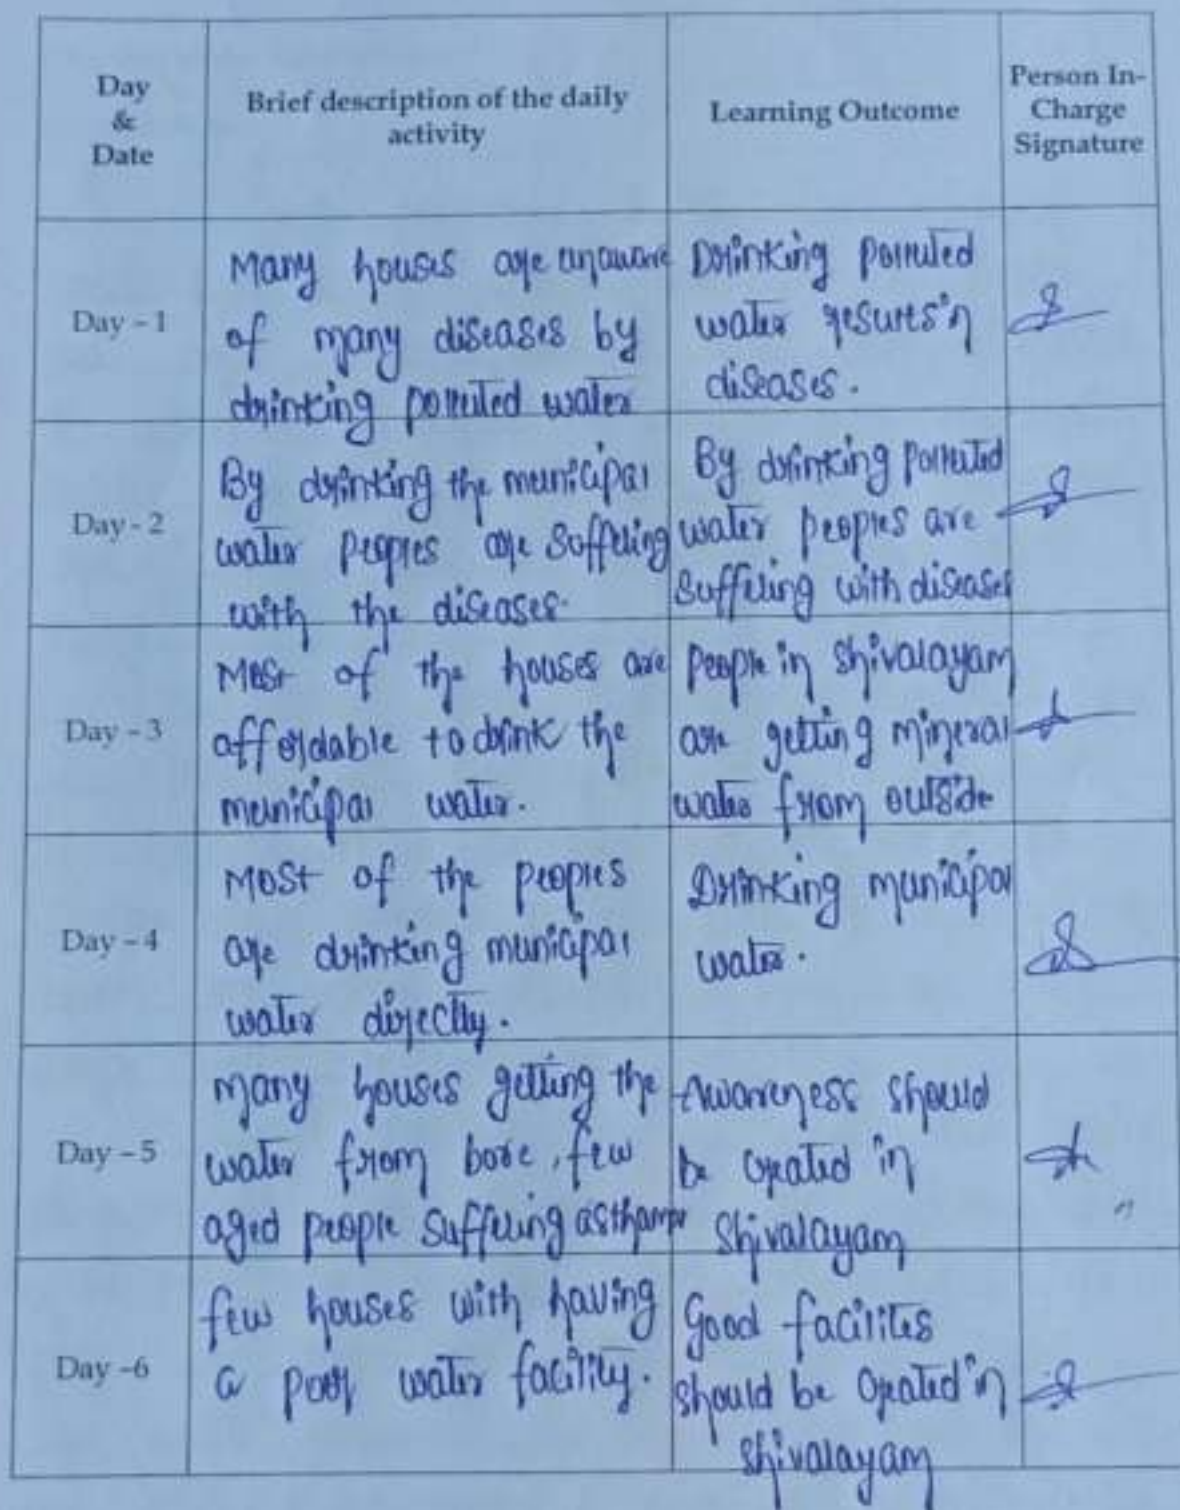 Day
&
Date
Brief description of the daily
activity
Learning Outcome
Person In-
Charge
Signature
Day - 1
Many houses are unaware
of many diseases by
drinking polluted water
Drinking polluted
water results in
diseases.
Day - 2
By drinking the municipal
water peoples are suffering
with the diseases.
By drinking polluted
water peoples are
suffering with diseases
Day - 3
Most of the houses are
affordable to drink the
municipal water.
People in Shivalayam
are getting mineral
water from outside
Day - 4
Most of the peoples
are drinking municipal
water directly.
Drinking municipal
water.
Day - 5
Many houses getting the
water from bore, few
aged people suffering asthama
Awareness should
be created in
Shivalayam
Day -6
few houses with having
a poor water facility.
Good facilites
should be created in
Shivalayam